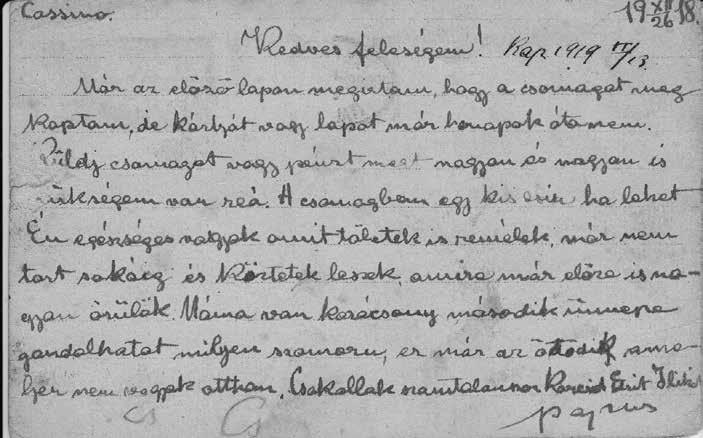 Cassino. 19 XII/26 18.
Kedves feleségem! Kap 1919 IV/13
Már az előző lapon megirtam, hogy a csomagot meg
kaptam, de kártyát vagy lapot már honapok óta nem.
Küldj csomagot vagy pénzt mert nagyon és nagyon is
szükségem van reá. A csomagbem egy kis ha lehet
Én egészséges vagyok amit töletek is remélek, már nem
tart sokáig és köztetek leszek, amire már előre is na-
gyon örülök. Máma van karácsony második ünnepe
gondolhatod milyen szomoru, ez már az ötödik ame-
lyer nem vagyok otthon. Csokollak számtalanszor